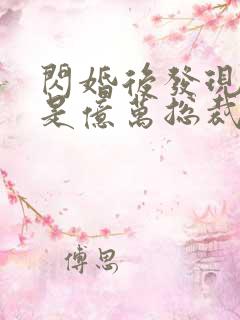 閃婚後發現
是億萬總裁
傅思